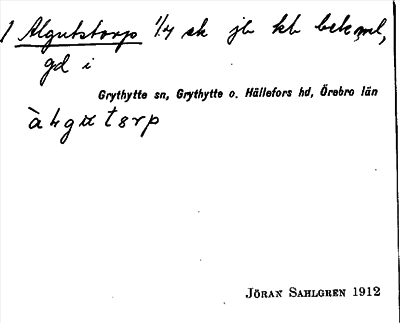 1 Algutstorp 1/4 sk jb kb
gd i
Grythytte sn, Grythytte o. Hällefors hd, Örebro län
JÖRAN SAHLGREN 1912